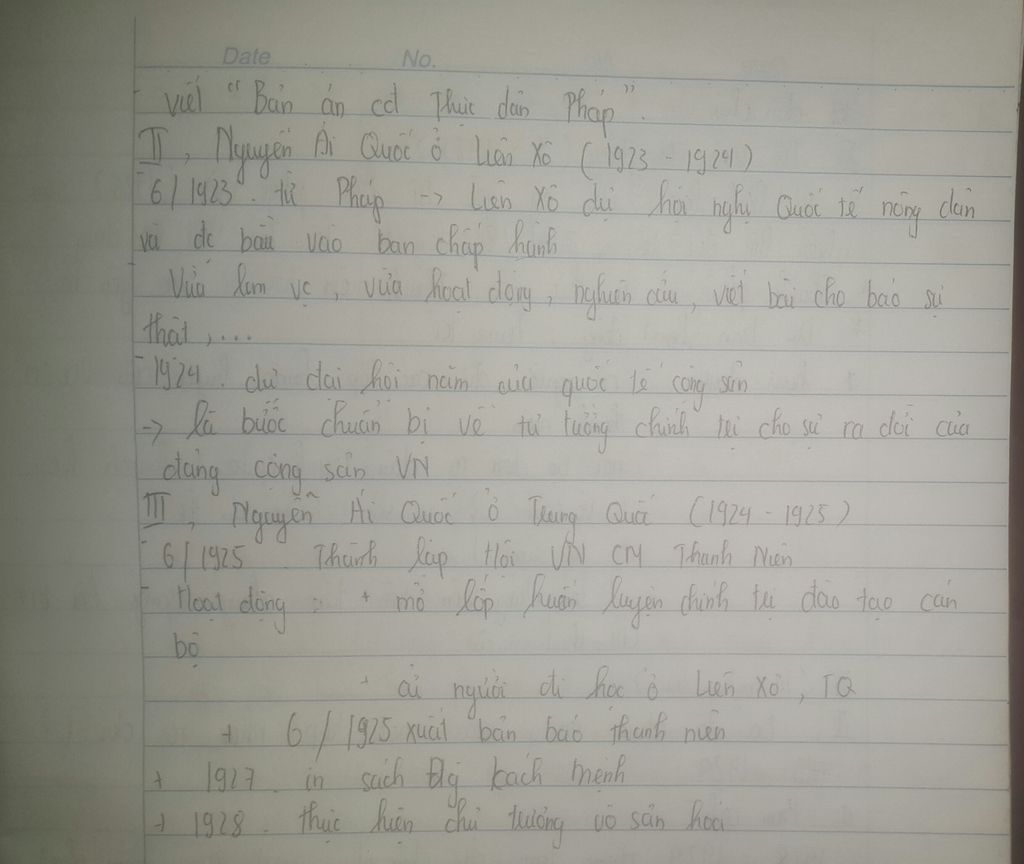 Date No.
- viết "Bản án cđ Thực dân Pháp".
II, Nguyễn Ái Quốc ở Liên Xô (1923 - 1924)
- 6/1923. từ Pháp -> Liên Xô dự hội nghị Quốc tế nông dân
và đc bầu vào ban chấp hành
- Vừa làm vc, vừa hoạt động, nghiên cứu, viết bài cho báo sự
thật,...
- 1924. dự đại hội năm của quốc tế cộng sản
-> là bước chuẩn bị về tư tưởng chính trị cho sự ra đời của
đảng cộng sản VN
III, Nguyễn Ái Quốc ở Trung Quốc (1924 - 1925)
- 6/1925 Thành lập Hội VN CM Thanh Niên
- Hoạt động : + mở lớp huấn luyện chính trị đào tạo cán
bộ
+ cử người đi học ở Liên Xô, TQ
+ 6/1925 xuất bản báo thanh niên
+ 1927. in sách Đg kách mệnh
+ 1928. thực hiện chủ trương vô sản hoá